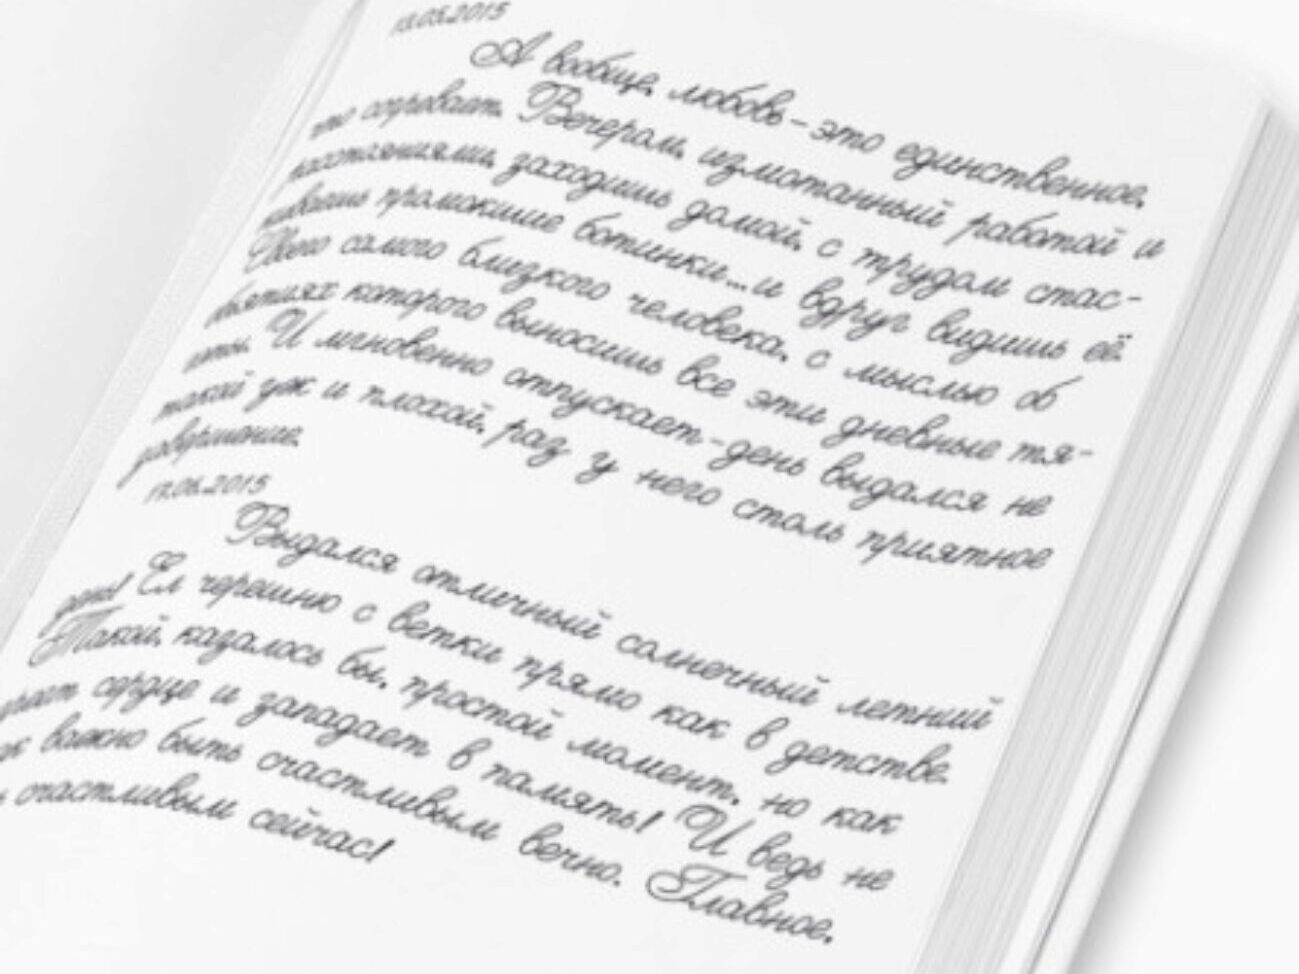 13.05.2015
А вообще, любовь - это единственное,
что согревает. Вечером, измотанный работой и
расстояниями, заходишь домой, с трудом стас-
киваешь промокшие ботинки...и вдруг видишь её.
Твоего самого близкого человека, с мыслью об
объятиях которого выносишь все эти дневные тя-
готы. И мгновенно отпускает - день выдался не
такой уж и плохой, раз у него столь приятное
завершение.
17.06.2015
Выдался отличный солнечный летний
день! Ел черешню с ветки прямо как в детстве.
Такой, казалось бы, простой момент, но как
сердце и западает в память! И ведь не
так важно быть счастливым вечно. Главное,
счастливым сейчас!